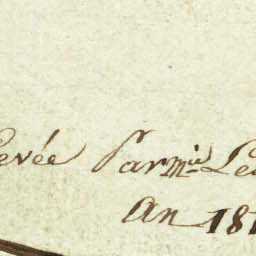 evée Par mie Le
An 181